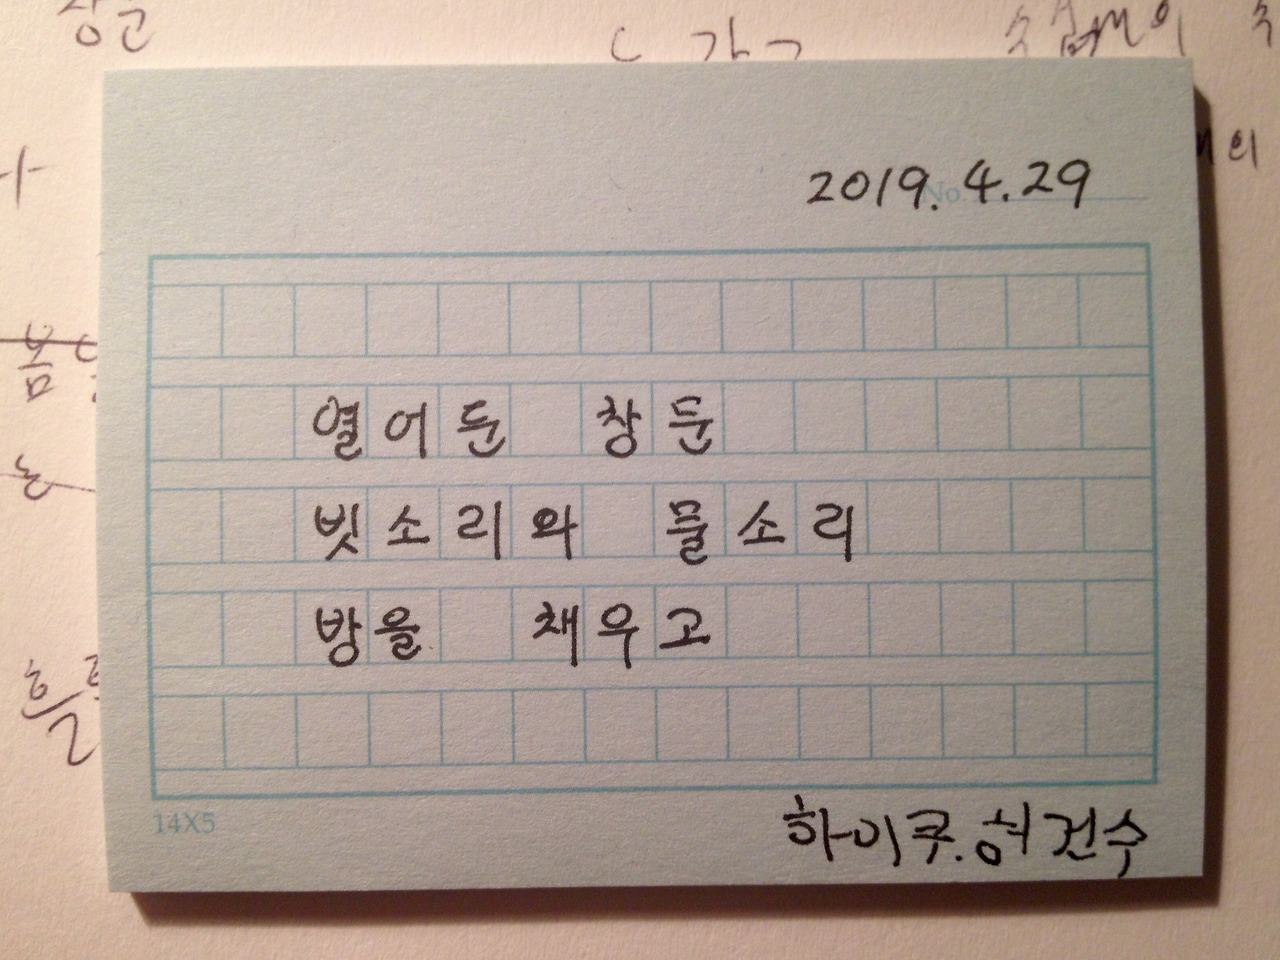 창문
2019.4.29
No.
열어둔 창문
빗소리와 물소리
방을 채우고
14X5
하이쿠.허건수